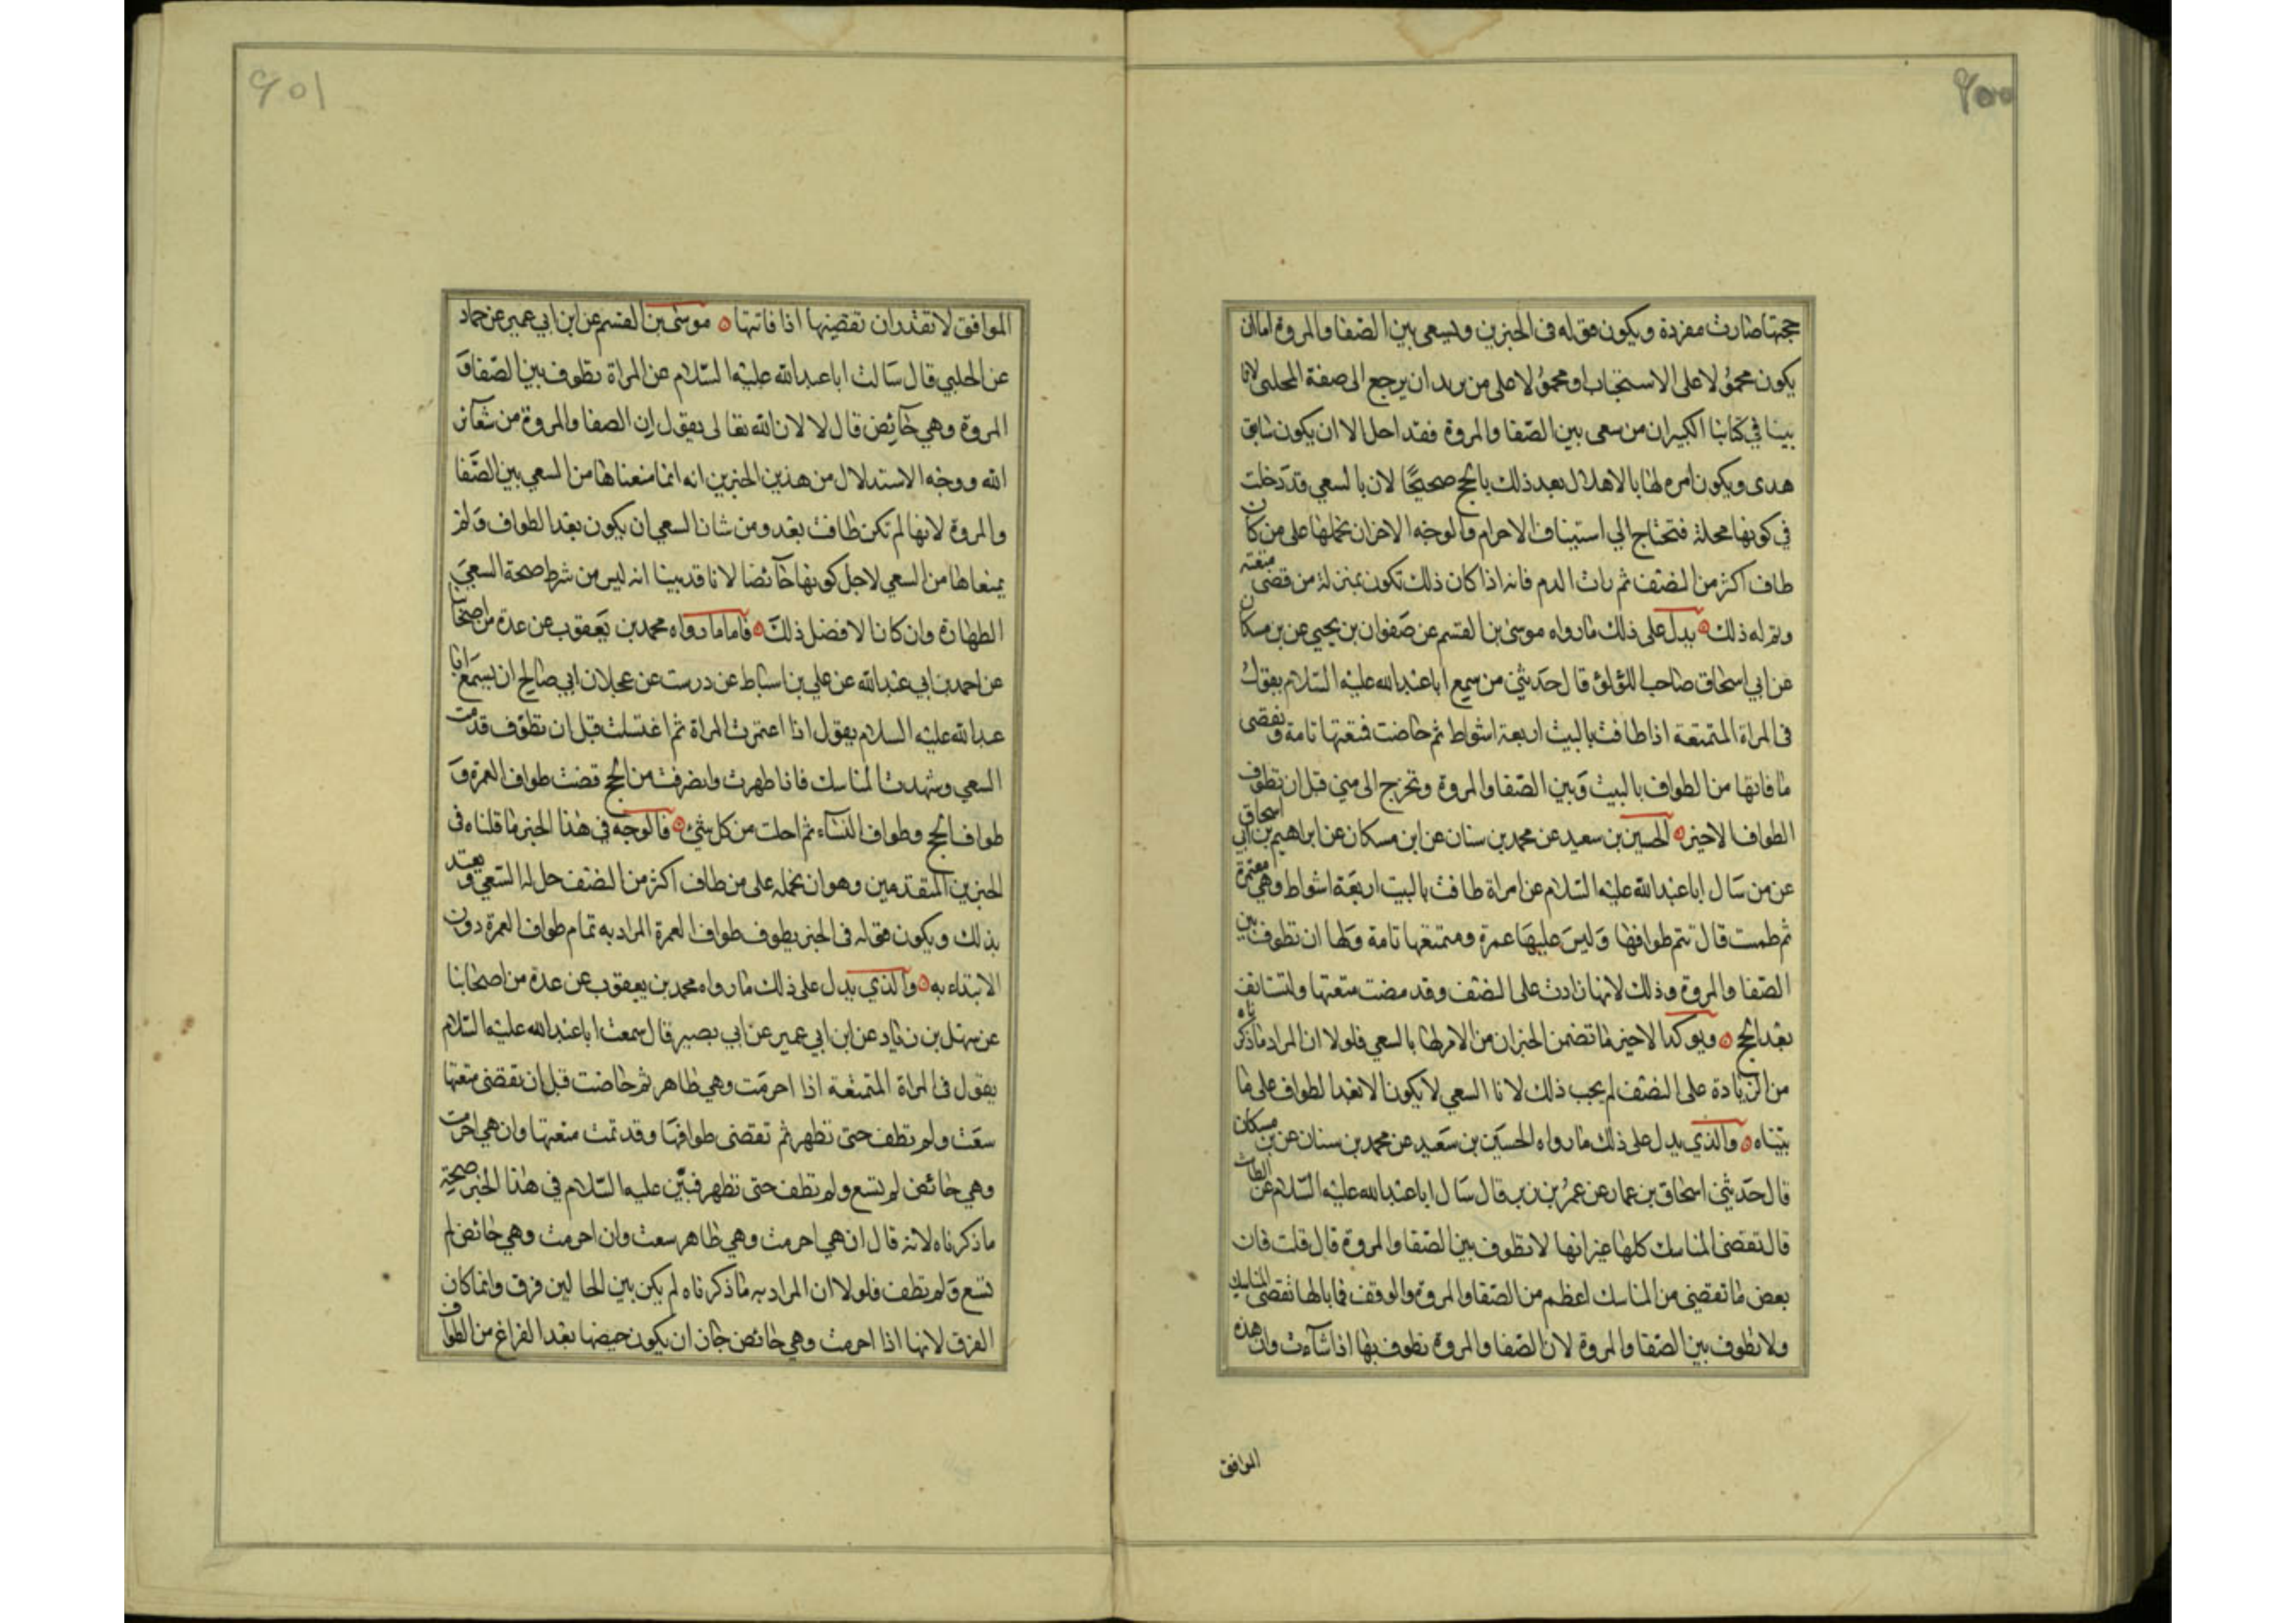 ٩٠٠
حجتها صارت مفردة ويكون قوله في الخبرين ويسعى بين الصفا والمروة اما ان
يكون محمولا على الاستحباب او محمولا على من يريد ان يرجع الى صفة المحلين لانا
بينا في كتابنا الكبير ان من سعى بين الصفا والمروة فقد احل الا ان يكون سايق
هدى ويكون امره لها بالاهلال بعد ذلك بالحج صحيحا لان بالسعي قد دخلت
في كونها محلة فتحتاج الى استيناف الاحرام والوجه الاخر ان نحملها على من كان
طاف اكثر من النصف ثم رات الدم فانه اذا كان ذلك تكون بمنزلة من قضى متعته
وتم له ذلك يدل على ذلك ما رواه موسى بن القسم عن صفوان بن يحيى عن بن مسكان
عن ابي اسحاق صاحب اللؤلؤ قال حدثني من سمع ابا عبدالله عليه السلام يقول
في المراة المتمتعة اذا طافت بالبيت اربعة اشواط ثم حاضت فمتعتها تامة وتقضى
ما فاتها من الطواف بالبيت وبين الصفا والمروة وتخرج الى منى قبل ان تطوف
الطواف الاخير الحسين بن سعيد عن محمد بن سنان عن ابن مسكان عن ابراهيم بن ابي اسحاق
عن من سال ابا عبدالله عليه السلام عن امراة طافت بالبيت اربعة اشواط وهي معتمرة
ثم طمثت قال تتم طوافها وليس عليها عمرة ومتعتها تامة ولها ان تطوف بين
الصفا والمروة وذلك لانها زادت على النصف وقد مضت متعتها ولتستانف
بعد الحج ويوكد الاخير ما تضمن الخبران من الامر لها بالسعي فلولا ان المراد ما ذكرناه
من الزيادة على النصف لم يجب ذلك لانا السعي لا يكون الا بعد الطواف على ما
بيناه والذي يدل على ذلك ما رواه الحسين بن سعيد عن محمد بن سنان عن بن مسكان
قال حدثني اسحاق بن عمار عن عمر بن يزيد قال سال ابا عبدالله عليه السلام عن الطامث
قال تقضى المناسك كلها غير انها لا تطوف بين الصفا والمروة قال قلت فان
بعض ما تقضى من المناسك اعظم من الصفا والمروة والوقف فما بالها تقضى المناسك
ولا تطوف بين الصفا والمروة لان الصفا والمروة تطوف بها اذا شاءت وان هذه
الموافق
٩٠١
الموافق لا تقدر ان تقضيها اذا فاتتها موسى بن القسم عن ابن ابي عمير عن حماد
عن الحلبي قال سالت ابا عبدالله عليه السلام عن المراة تطوف بين الصفا و
المروة وهي حائض قال لا لان الله تعالى يقول ان الصفا والمروة من شعائر
الله ووجه الاستدلال من هذين الخبرين انه انما منعناها من السعي بين الصفا
والمروة لانها لم تكن طافت بعد ومن شان السعي ان يكون بعد الطواف ولم
يمنعاها من السعي لاجل كونها حائضا لانا قد بينا انه ليس من شرط صحة السعي
الطهارة وان كان الافضل ذلك فاما ما رواه محمد بن يعقوب عن عدة من اصحابنا
عن احمد بن ابي عبدالله عن علي بن اسباط عن درست عن عجلان ابي صالح ان يسمع ابا
عبدالله عليه السلام يقول اذا اعتمرت المراة ثم اغتسلت قبل ان تطوف قدمت
السعي وشهدت المناسك فاذا طهرت وانصرفت من الحج قضت طواف العمرة و
طواف الحج وطواف النساء ثم احلت من كل شئ فالوجه في هذا الخبر ما قلناه في
الخبرين المتقدمين وهو ان نحمله على من طاف اكثر من النصف حل له السعي ويعتد
بذلك ويكون قوله في الخبر يطوف طواف العمرة المراد به تمام طواف العمرة دون
الابتداء به والذي يدل على ذلك ما رواه محمد بن يعقوب عن عدة من اصحابنا
عن سهل بن زياد عن ابن ابي عمير عن ابي بصير قال سمعت ابا عبدالله عليه السلام
يقول في المراة المتمتعة اذا احرمت وهي طاهر ثم حاضت قبل ان تقضى متعتها
سعت ولم تطف حتى تطهر ثم تقضى طوافها وقد تمت متعتها وان هي احرمت
وهي حائض لم تسع ولم تطف حتى تطهر فبين عليه السلام في هذا الخبر صحة
ما ذكرناه لانه قال ان هي احرمت وهي طاهر سعت وان احرمت وهي حائض لم
تسع ولم تطف فلولا ان المراد به ما ذكرناه لم يكن بين الحالين فرق وانما كان
الفرق لانها اذا احرمت وهي حائض جاز ان يكون حيضها بعد الفراغ من الطواف